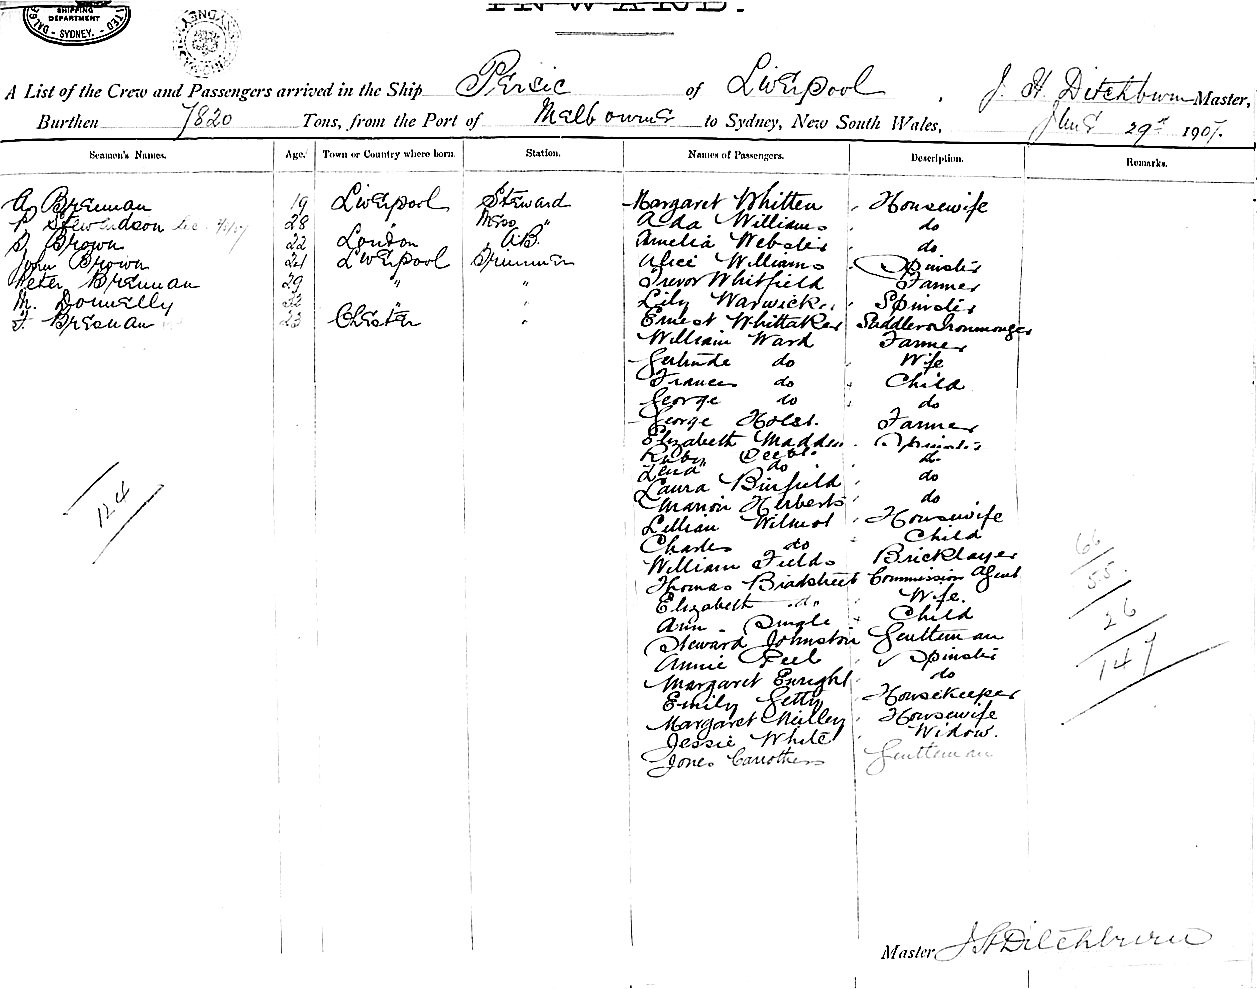 INWARD.
SHIPPING
DEPARTMENT
SYDNEY.
SYDNEY
A List of the Crew and Passengers arrived in the Ship Persic of Liverpool, J. H. Ditchburn Master,
Burthen 7820 Tons, from the Port of Melbourne to Sydney, New South Wales, June 29th 1907.
Seamen's Names. Age. Town or Country where born. Station. Names of Passengers. Description. Remarks.
A. Brennan 19 Liverpool Steward Margaret Whitten Housewife
Stewardson 28 " Mess " Ada Williams do
Brown 22 London A.B. Amelia Webster do
John Brown 21 Liverpool Trimmer Alice Williams Spinster
Peter Brennan 29 " " Trevor Whitfield Farmer
M. Donnelly 22 " " Lily Warwick Spinster
F. Bresnan 23 Chester " Ernest Whittaker Saddler & Ironmonger
William Ward Farmer
Gertrude do Wife
Frances do Child
George do do
George Holst. Farmer
Elizabeth Madden Spinster
Ruby do
Lena do do
Laura Binfield do
Marion Herberts do
Lillian Wilmot Housewife
Charles do Child
William Fields Bricklayer
Thomas Bradstreet Commission Agent
Elizabeth do Wife.
Ann Single Child
Steward Johnston Gentleman
Annie Peel Spinster
Margaret Enright do
Emily Getty Housekeeper
Margaret Neilley Housewife
Jessie White Widow.
Jones Carrothers Gentleman
124
66
55
26
147
Master, J H Ditchburn